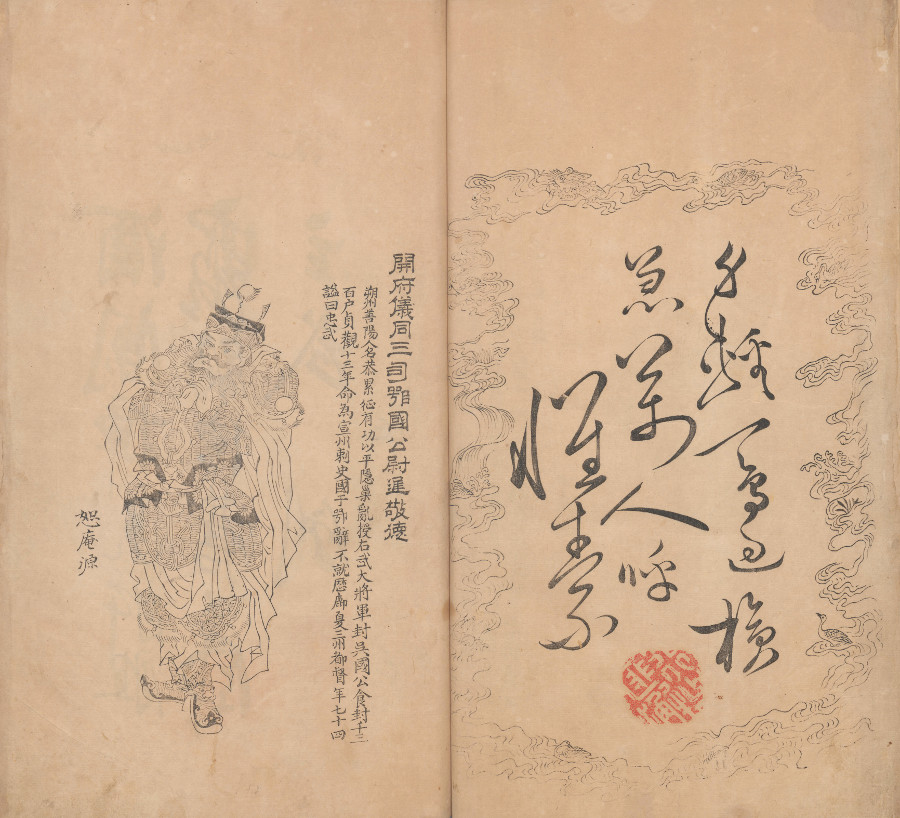 身輕一鳥過槍
急萬人呼
懷素
開府儀同三司鄂國公尉遲敬德
朔州善陽人名恭累征有功以平隱巢亂授右武大將軍封吳國公食封千三
百户貞觀十三年命為宣州刺史國于鄂辭不就歷鄜夏三州都督年七十四
謚曰忠武
恕庵源